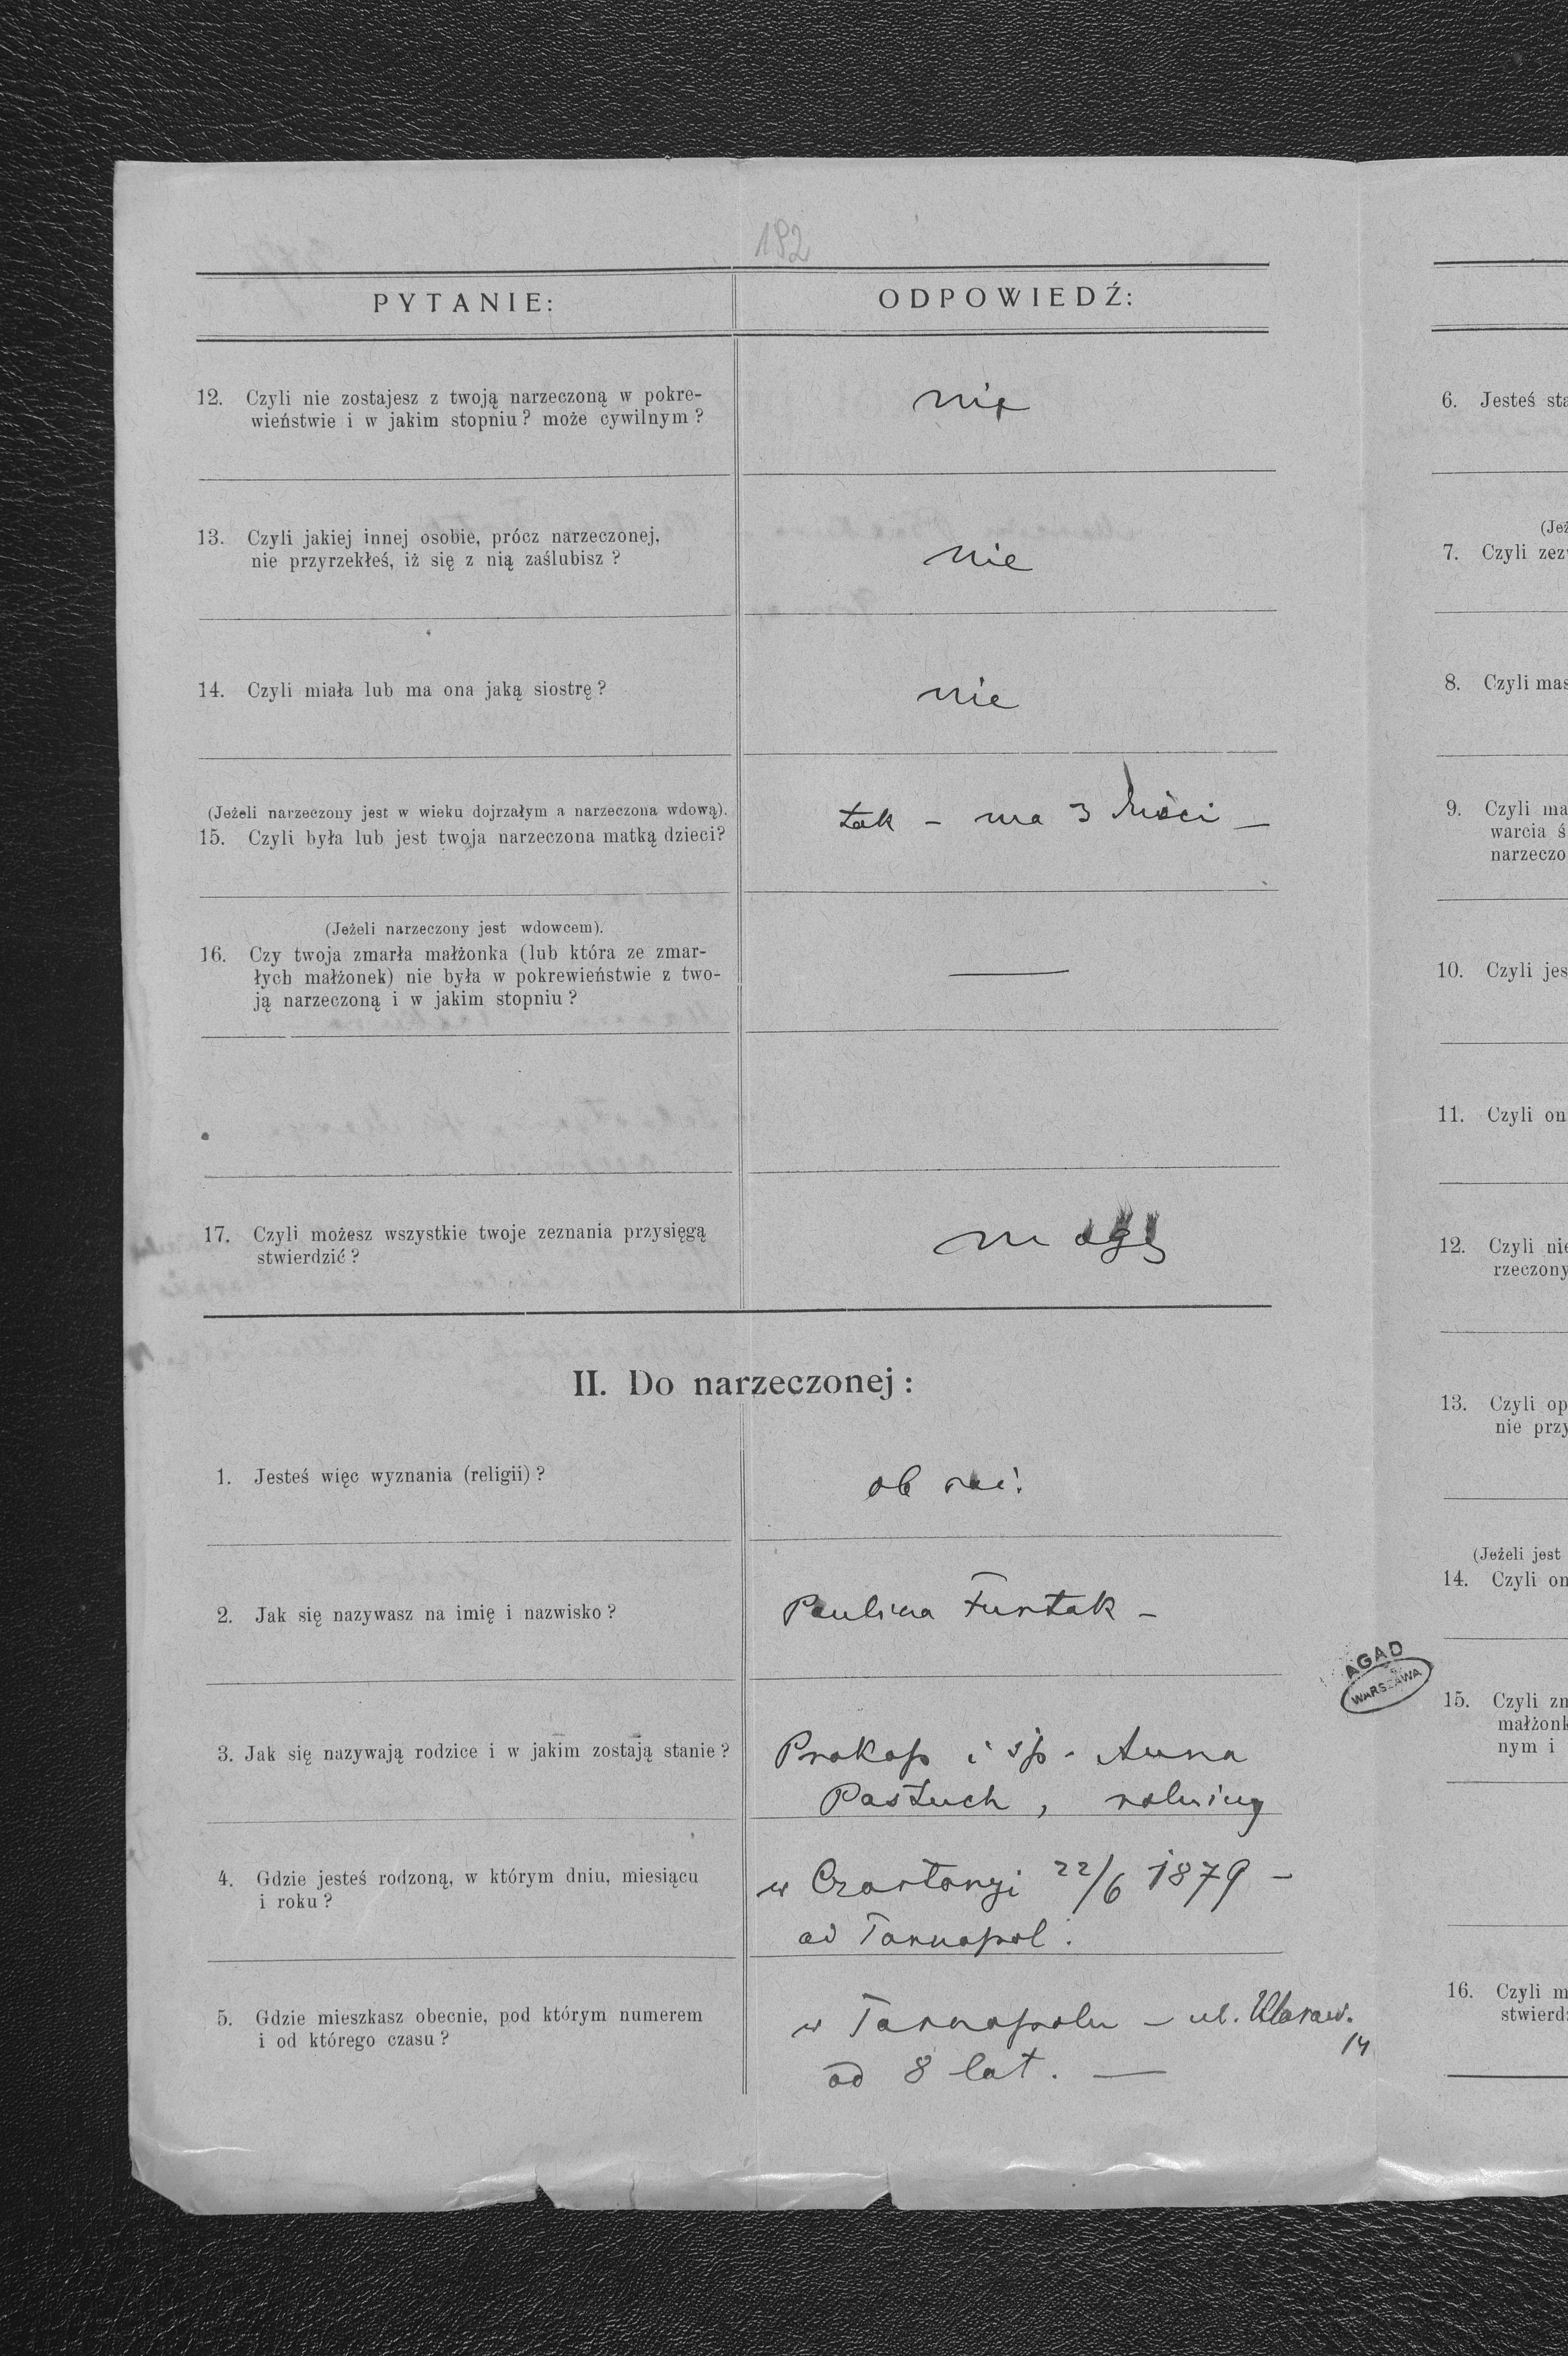 192
PYTANIE:
ODPOWIEDŹ:
12. Czyli nie zostajesz z twoją narzeczoną w pokre-
wieństwie i w jakim stopniu? może cywilnym?
nie
13. Czyli jakiej innej osobie, prócz narzeczonej,
nie przyrzekłeś, iż się z nią zaślubisz?
nie
14. Czyli miała lub ma ona jaką siostrę?
nie
(Jeżeli narzeczony jest w wieku dojrzałym a narzeczona wdową).
15. Czyli była lub jest twoja narzeczona matką dzieci?
tak – ma 3 –
(Jeżeli narzeczony jest wdowcem).
16. Czy twoja zmarła małżonka (lub która ze zmar-
łych małżonek) nie była w pokrewieństwie z two-
ją narzeczoną i w jakim stopniu?
—
17. Czyli możesz wszystkie twoje zeznania przysięgą
stwierdzić?
mogę
II. Do narzeczonej:
1. Jesteś więc wyznania (religii)?
ob
2. Jak się nazywasz na imię i nazwisko?
Paulina Furtak –
3. Jak się nazywają rodzice i w jakim zostają stanie?
Prokop i śp. Anna
Pastuch, rolnicy
4. Gdzie jesteś rodzoną, w którym dniu, miesiącu
i roku?
w 22/6 1879 –
ad Tarnopol.
5. Gdzie mieszkasz obecnie, pod którym numerem
i od którego czasu?
w Tarnopolu – ul.
14
od 8 lat. —
AGAD
WARSZAWA
6. Jesteś sta
(Jeż
7. Czyli zez
8. Czyli mas
9. Czyli ma
warcia ś
narzeczo
10. Czyli jes
11. Czyli on
12. Czyli nie
rzeczony
13. Czyli op
nie przy
(Jeżeli jest
14. Czyli on
15. Czyli zm
małżonk
nym i
16. Czyli m
stwierd